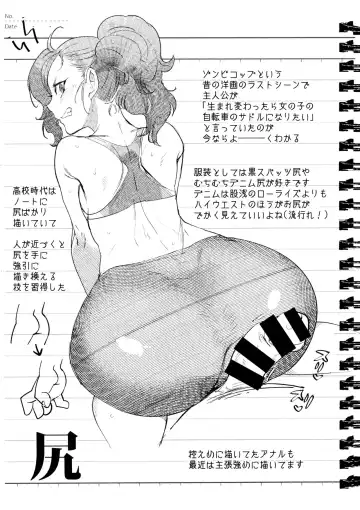 No.
Date
ゾンビコップという
昔の洋画のラストシーンで
主人公が
「生まれ変わったら女の子の
自転車のサドルになりたい」
と言っていたのが
今ならよーーーくわかる
服装としては黒スパッツ尻や
むちむちデニム尻が好きです
デニムは股浅のローライズよりも
ハイウエストのほうがお尻が
でかく見えていいよね(流行れ!)
高校時代は
ノートに
尻ばかり
描いていて
人が近づくと
尻を手に
強引に
描き換える
技を習得した
尻
控えめに描いてたアナルも
最近は主張強めに描いてます